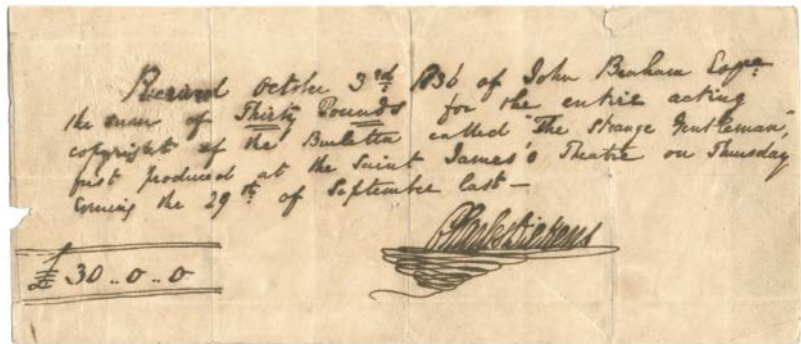 Received October 3rd 1836 of John Braham Esqre
the sum of Thirty Pounds for the entire acting
copyright of the Burletta called "The Strange Gentleman,"
first produced at the Saint James's Theatre on Thursday
Evening the 29th of September last —
Charles Dickens
£ 30 .. 0 .. 0